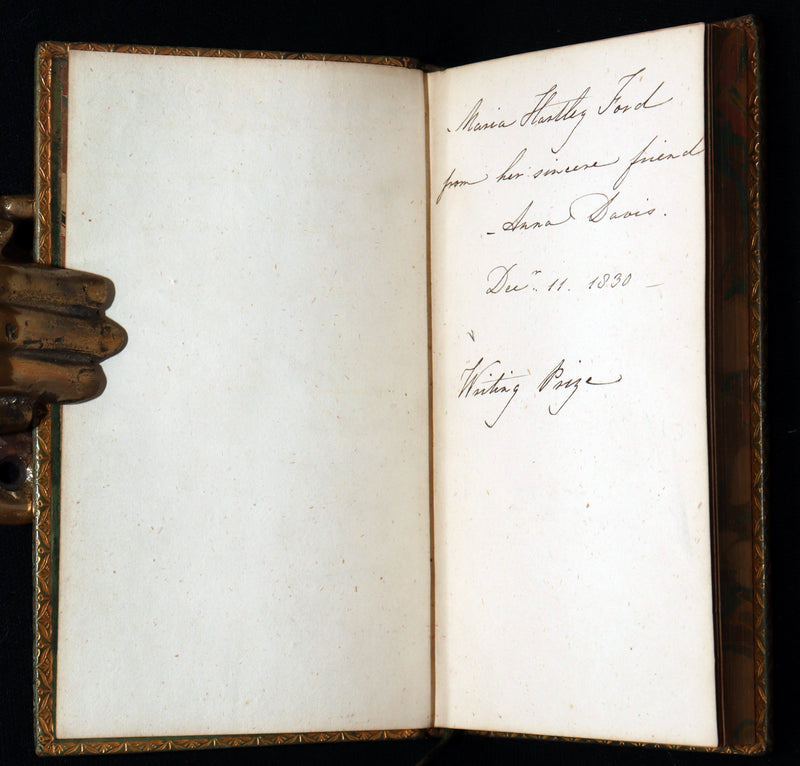 Maria Hartley Ford
from her sincere friend
- Anna Davis.
Decr. 11. 1830 -
Writing Prize